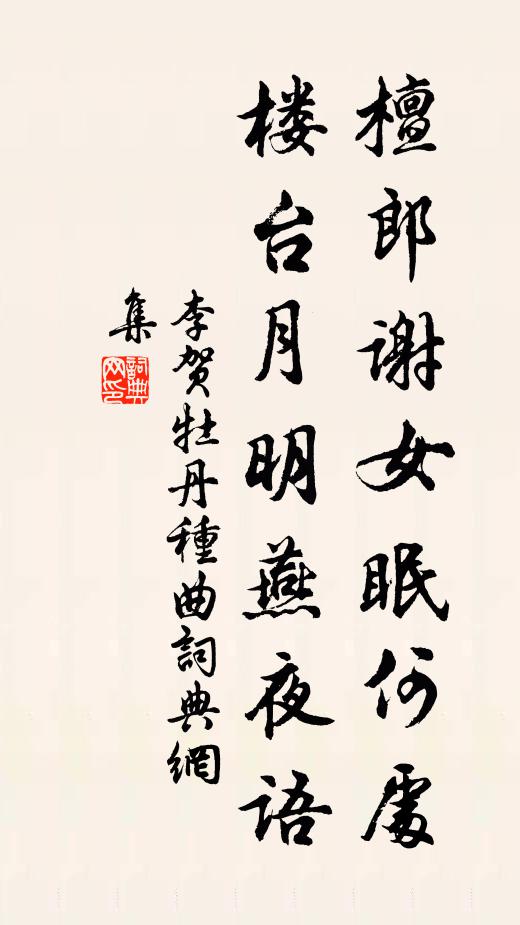 檀郎谢女眠何處
楼台月明燕夜语
李贺牡丹種曲詞典網
集
詞典网印